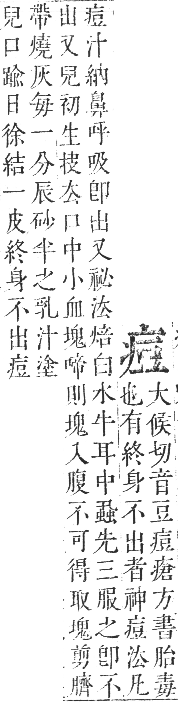 痘
大候切音豆痘瘡方書胎毒
也有終身不出者神痘法凡
痘汁納鼻呼吸卽出又祕法焙白水牛耳中蝨先三服之卽不
出又兒初生技厺口中小血塊啼則塊入腹不可得取塊剪臍
帶燒灰每一分辰砂半之乳汁塗
兒口踰日徐結一皮終身不出痘